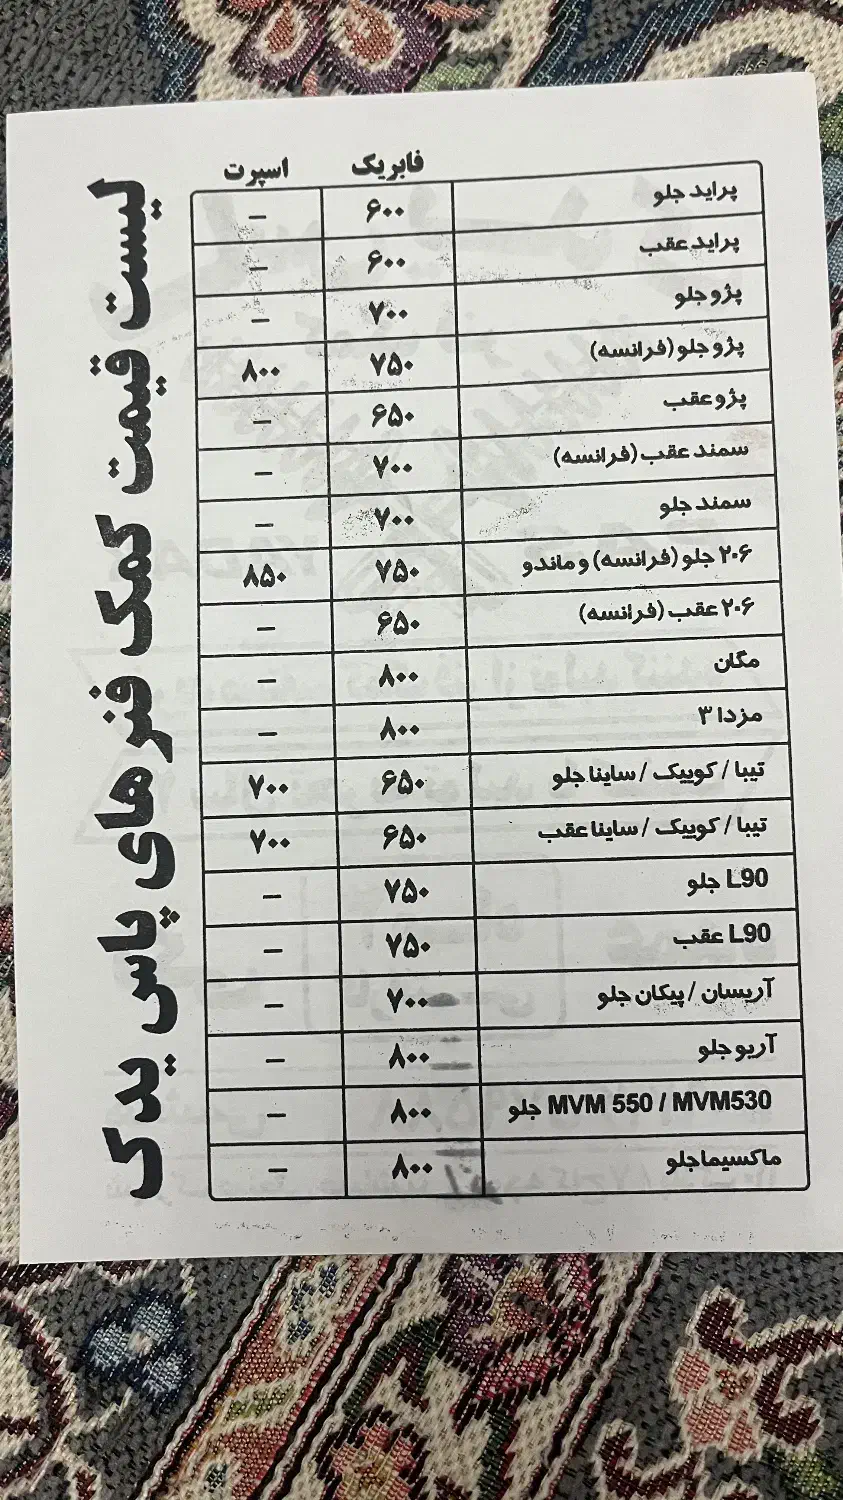 لیست قیمت کمک فنرهای پاس یدک
فابریک اسپرت
پراید جلو ۶۰۰ –
پراید عقب ۶۰۰ –
پژو جلو ۷۰۰ –
پژو جلو (فرانسه) ۷۵۰ ۸۰۰
پژو عقب ۶۵۰ –
سمند عقب (فرانسه) ۷۰۰ –
سمند جلو ۷۰۰ –
۲۰۶ جلو (فرانسه) و ماندو ۷۵۰ ۸۵۰
۲۰۶ عقب (فرانسه) ۶۵۰ –
مگان ۸۰۰ –
مزدا ۳ ۸۰۰ –
تیبا / کوییک / ساینا جلو ۶۵۰ ۷۰۰
تیبا / کوییک / ساینا عقب ۶۵۰ ۷۰۰
L90 جلو ۷۵۰ –
L90 عقب ۷۵۰ –
آریسان / پیکان جلو ۷۰۰ –
آریو جلو ۸۰۰ –
MVM 550 / MVM530 جلو ۸۰۰ –
ماکسیما جلو ۸۰۰ –